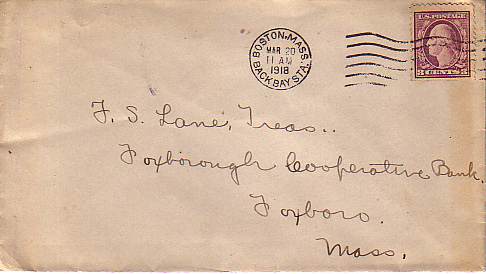 BOSTON, MASS.
MAR 20
11 AM
1918
BACK BAY STA.
U.S. POSTAGE
3 CENTS 3
F. S. Lane, Treas..
Foxborough Cooperative Bank.
Foxboro.
Mass.